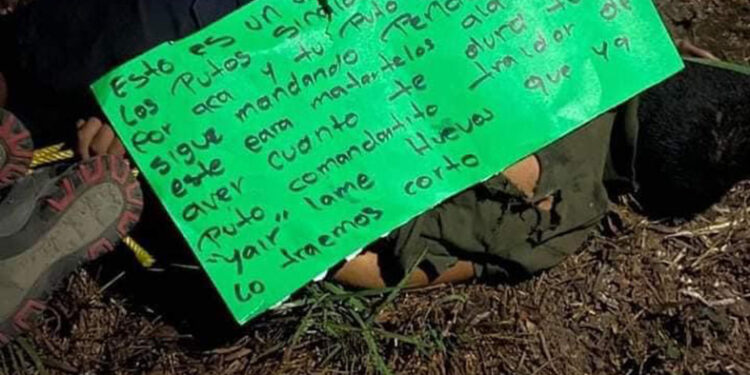 Esto es un
los Putos
For aca y tu Puto
sigue mandando Pend
este para matartelos ala
aver cuanto te dura tu
Puto comandantito traidor de
"yair" lame Huevos que ya
lo traemos corto